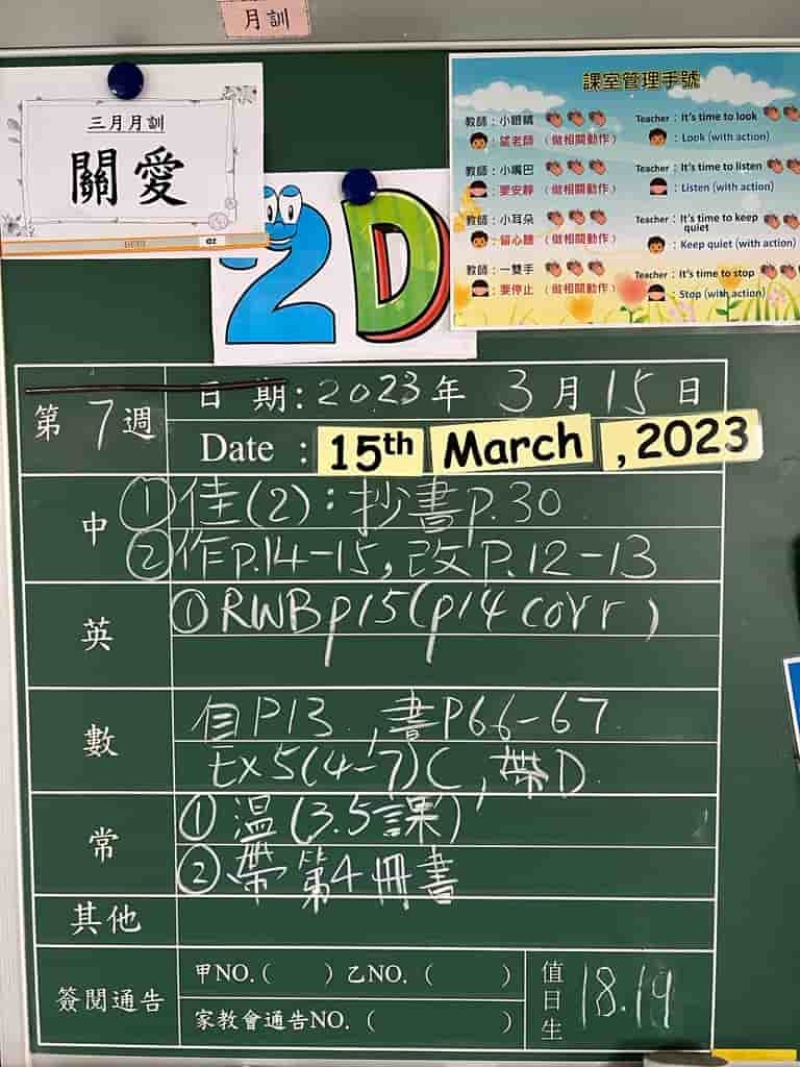 月訓
三月月訓
關愛
2D
課室管理手號
教師：小眼睛
Teacher：It's time to look
：望老師（做相關動作）
：Look (with action)
教師：小嘴巴
Teacher：It's time to listen
：要安靜（做相關動作）
：Listen (with action)
教師：小耳朵
Teacher：It's time to keep quiet
：留心聽（做相關動作）
：Keep quiet (with action)
教師：一雙手
Teacher：It's time to stop
：要停止（做相關動作）
：Stop (with action)
第7週
日期：2023年3月15日
Date：15th March, 2023
中
①佳(2)：抄書p.30
②作p.14-15，改p.12-13
英
①RWBp15(p14 corr)
數
自P13，書P66-67
Ex5(4-7)C，帶D
常
①溫(3.5課)
②帶第4冊書
其他
簽閱通告
甲NO.（ ）乙NO.（ ）
家教會通告NO.（ ）
值日生
18.19